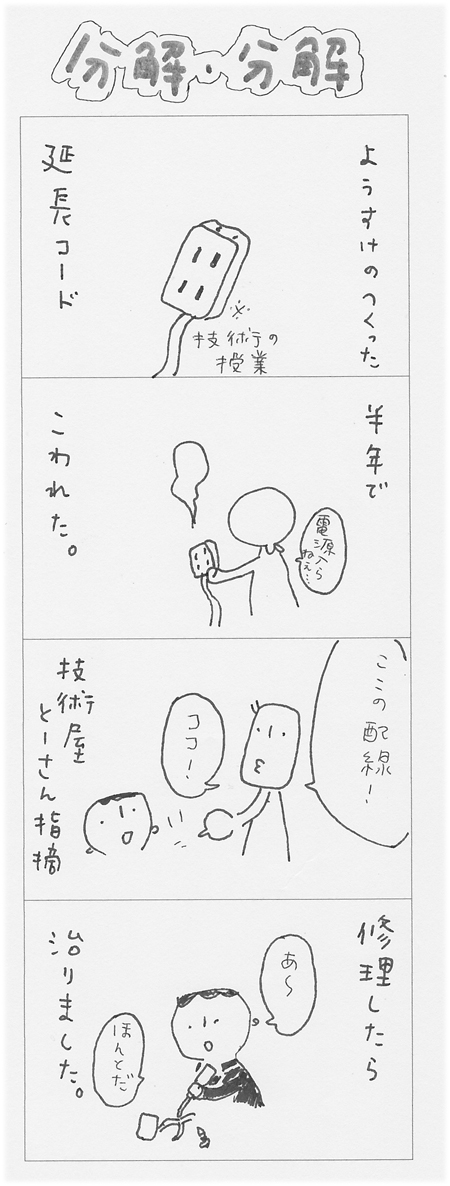 分解・分解
ようすけのつくった
延長コード
※技術の
授業
半年で
こわれた。
電源入ら
ねぇ…
ここの配線!
ココ!
技術屋
とーさん指摘
修理したら
治りました。
あ〜
ほんとだ